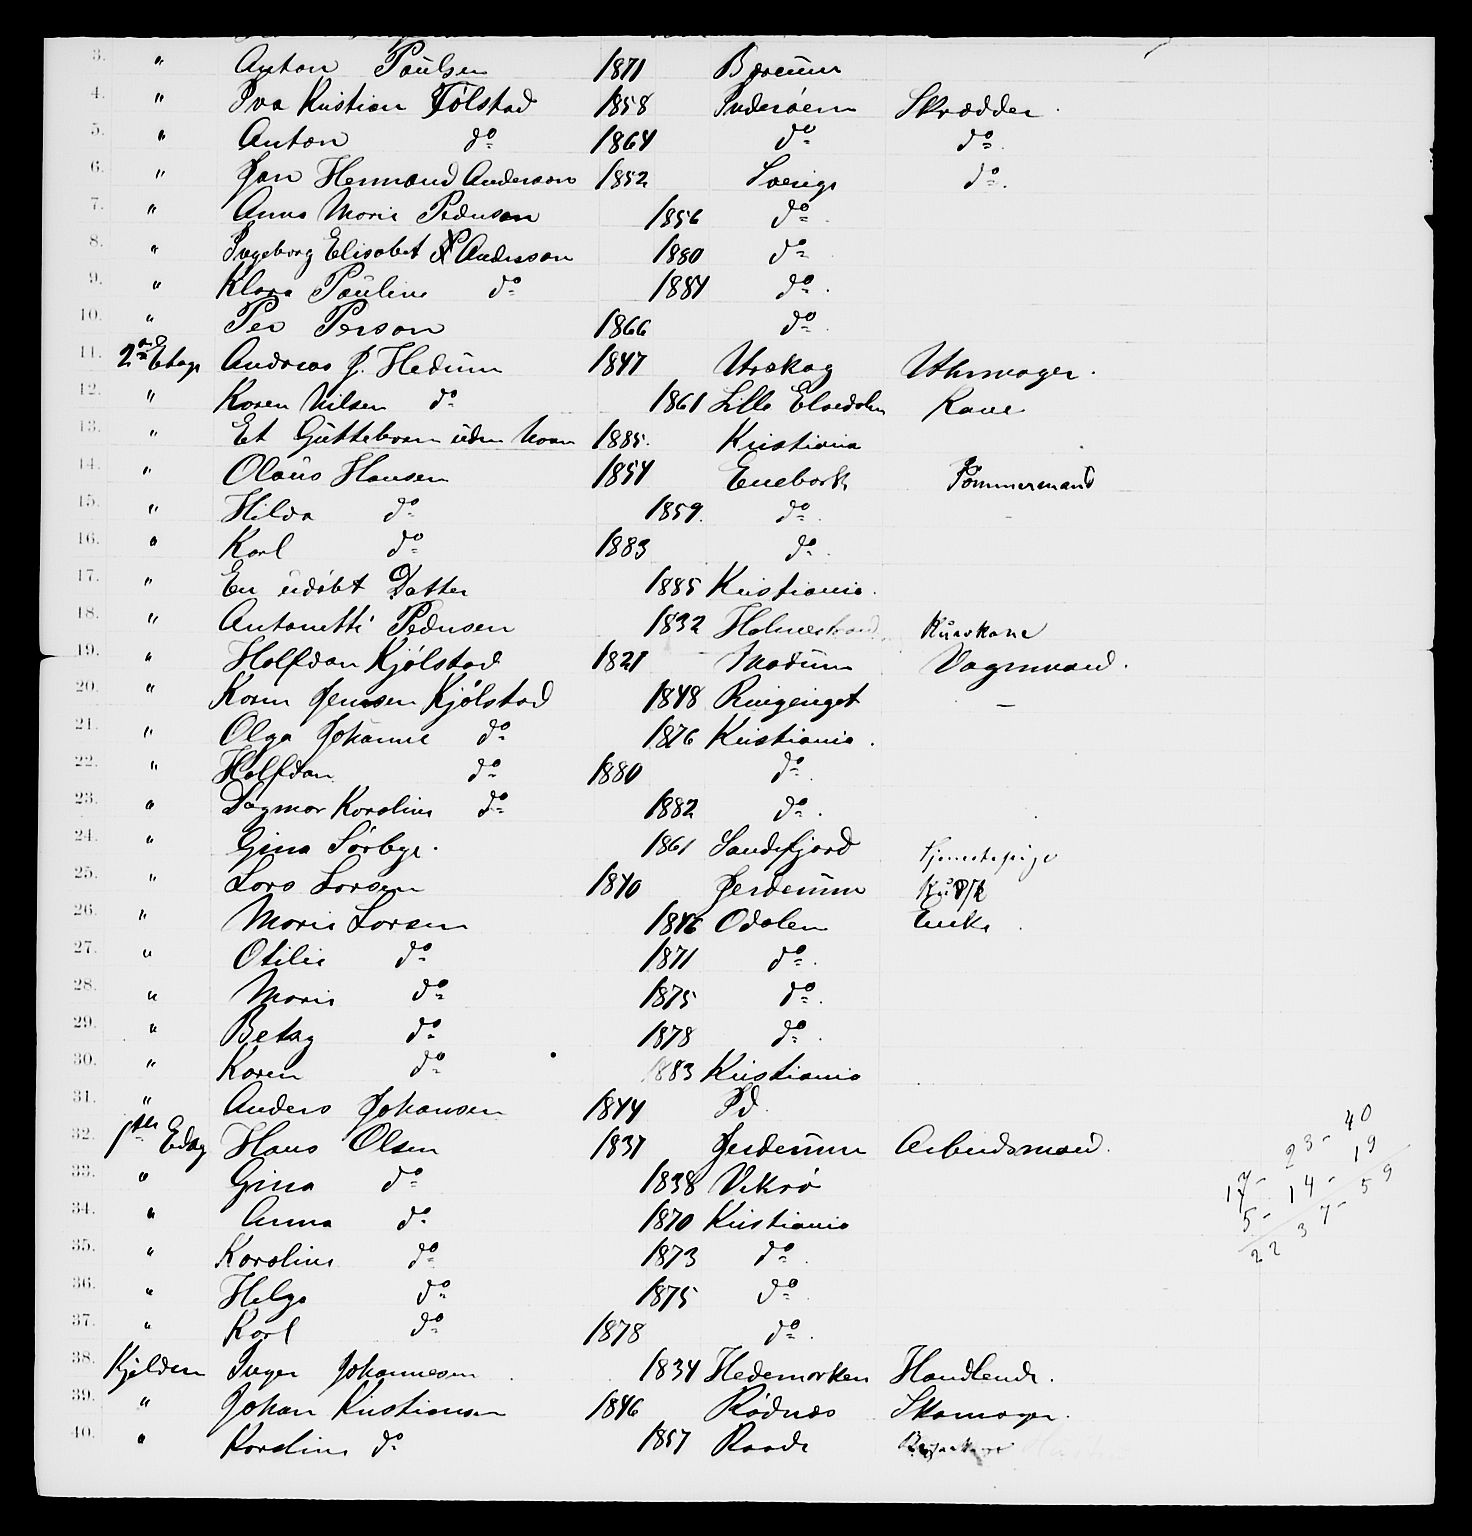 3. " Anton Paulsen 1871 Bærum
4. " Iva Kristian Tølstad 1858 Inderøen Skrædder.
5. " Anton do 1864 do do.
6. " Jan Hermand Anderson 1852 Sverige do.
7. " Anna Marie Pedersen 1856 do.
8. " Ingeborg Elisabet Andersson 1880 do.
9. " Klara Pauline do 1884 do.
10. " Per Person 1866 do.
11. 2den Etage Andreas J. Hedum 1847 Urskog Uhrmager.
12. " Karen Nilsen do 1861 Lille Elvedalen Kone
13. " Et Guttebarn uden Navn 1885. Kristiania
14. " Olaus Hansen 1854 Enebak Tømmermand
15. " Hilda do 1859. do. -
16. " Karl do 1883 do.
17. " En udøbt Datter 1885 Kristiania.
18. " Antonetti Pedersen 1832 Holmestrand.
19. " Halfdan Kjølstad 1821 Modum Vognmand.
20. " Karen Jensen Kjølstad 1848 Ringeriget -
21. " Olga Johanne do 1876 Kristiania.
22. " Halfdan do 1880 do.
23. " Dagmar Karoline do 1882 do.
24. " Gina Sørbye. 1861 Sandefjord Tjenestepige
25. " Lars Larsen 1840 Jerdrum
26. " Marie Larsen 1846 Odalen Enke.
27. " Otilie do 1871 do.
28. " Marie do 1875 do.
29. " Betsy do 1878 do.
30. " Karen do 1883 Kristiania
31. " Anders Johansen 1844 Id.
32. 1ste Etag Hans Olsen 1837 Jerdrum Arbeidsmand.
33. " Gina do 1838 Vikø
34. " Anna do 1870 Kristiania
35. " Karoline do 1873 do.
36. " Helga do 1875 do.
37. " Karl do 1878 do.
38. Kjelderen Inger Johannesen 1834 Hedemarken Handlende.
39. " Johan Kristiansen 1846 Rødnæs Skomager.
40. " Karoline do 1857 Raade
17 - 23 - 40
5 - 14 - 19
22 37 - 59